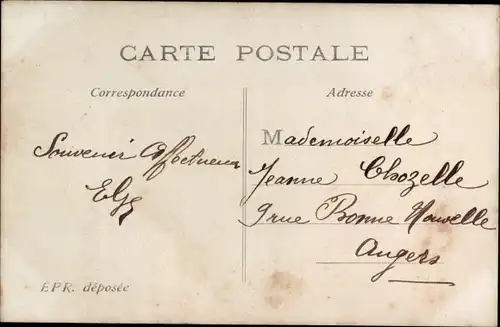 CARTE POSTALE
Correspondance
Adresse
Souvenir affectueux
Mademoiselle
Jeanne Chozelle
9 rue Bonne Nouvelle
Angers
EPR. déposée